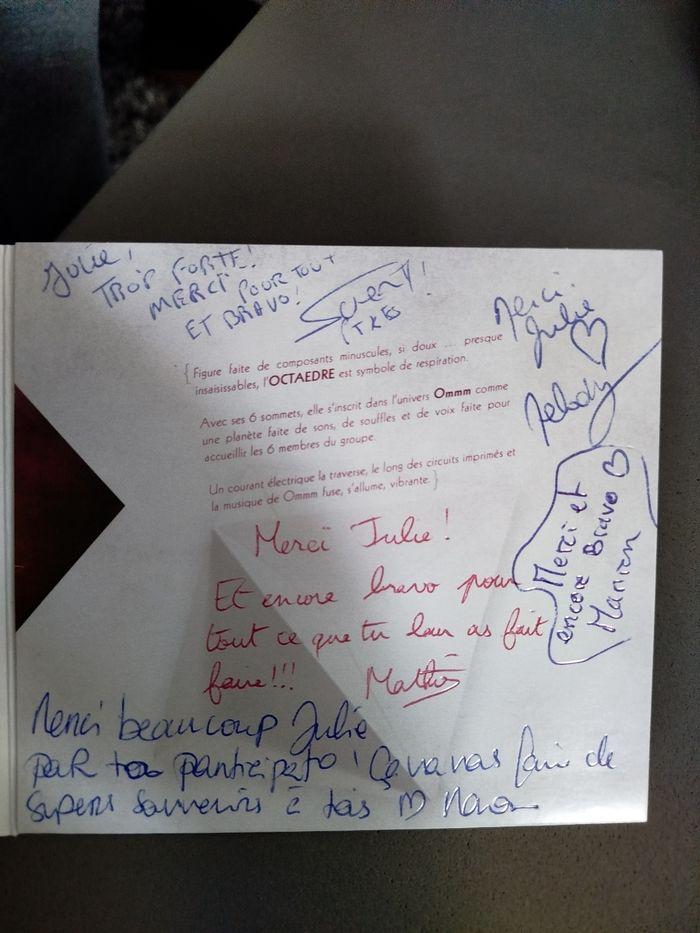 Julie!
TROP FORTE!
MERCI POUR TOUT
ET BRAVO!
Merci
Julie
{ Figure faite de composants minuscules, si doux ... presque
insaisissables, l'OCTAEDRE est symbole de respiration.
Avec ses 6 sommets, elle s'inscrit dans l'univers Ommm comme
une planète faite de sons, de souffles et de voix faite pour
accueillir les 6 membres du groupe.
Un courant électrique la traverse, le long des circuits imprimés et
la musique de Ommm fuse, s'allume, vibrante. }
Merci et
encore Bravo
Manon
Merci Julie!
Et encore bravo pour
tout ce que tu leur as fait
faire!!!
Merci beaucoup Julie